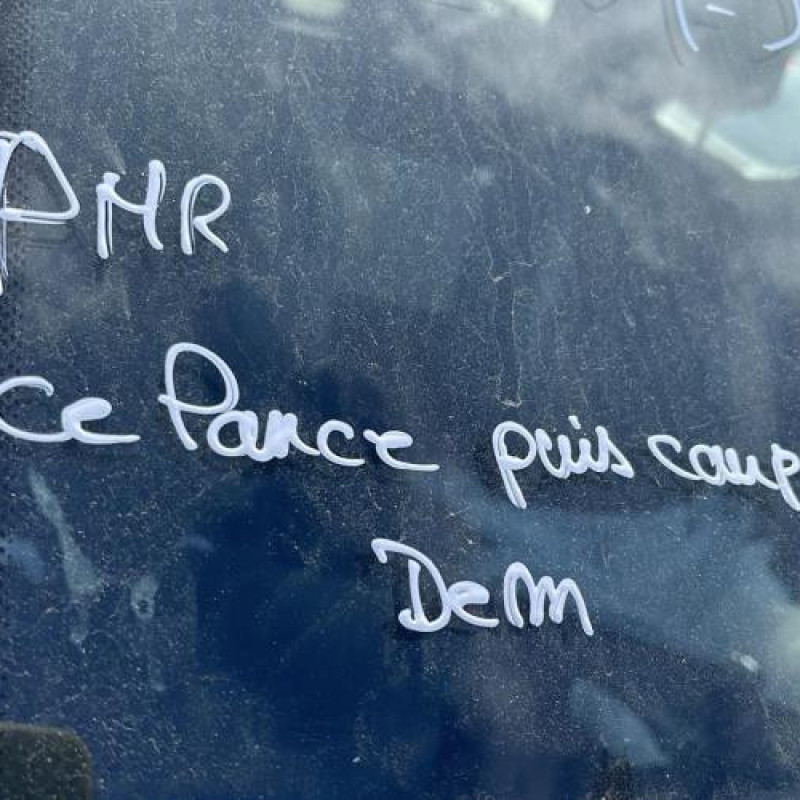 (-)
PMR
ce lance puis coup
Dem